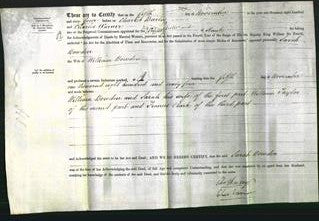 These are to Certify that on the fifth day of November in the year One thousand eight hundred
and forty four before Charles
two of the Perpetual Commissioners appointed for the
for taking the Acknowledgments of Deeds by Married Women, pursuant to an Act passed in the Fourth Year of the Reign of His late Majesty King William the Fourth, intituled
" An Act for the Abolition of Fines and Recoveries, and for the Substitution of more simple Modes of Assurance," appeared personally Sarah
Bowden
the Wife of William Bowden
and produced a certain Indenture marked A bearing date the fifth day of November
one thousand eight hundred and forty four
and made between
William Bowden and Sarah his wife of the first part William Taylor
of the second part and Francis of the third part
and acknowledged the same to be her Act and Deed, AND WE DO HEREBY CERTIFY, that the said Sarah Bowden
was at the time of her acknowledging the said Deed, of full age and competent understanding, and that she was examined by us, apart from her Husband,
touching her knowledge of the contents of the said Deed, and that she freely and voluntarily consented to the same.